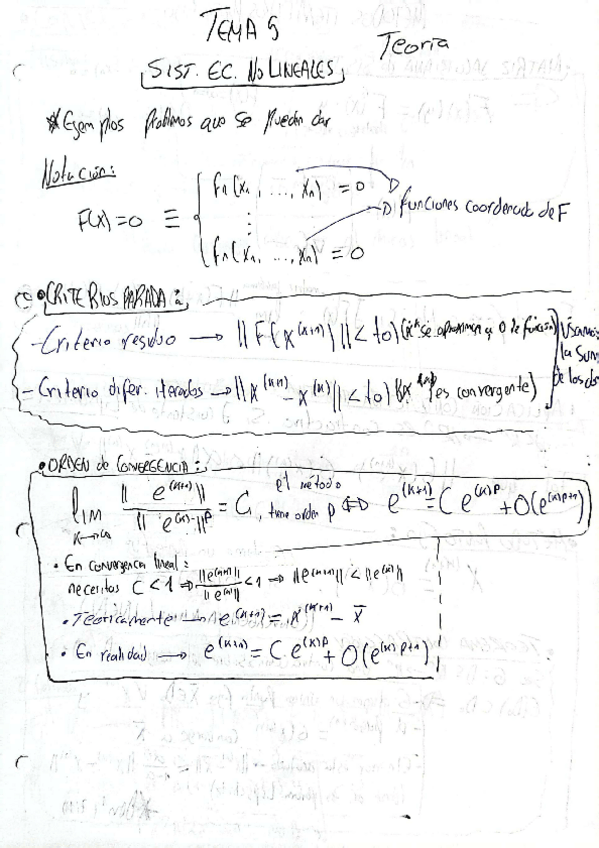 TEMA 5
Teoría
SIST. EC. NO LINEALES
* Ejemplos problemas que se puedan dar
Notación:
F(x)=0 ≡ { fn(x1, ..., xn) = 0
⋮
fn(x1, ..., xn) = 0
funciones coordenadas de F
• CRITERIOS PARADA:
- Criterio residuo → ||F(x^(k+1))|| < tol (x^k se aproxima a 0 de función)
- Criterio difer. iterados → ||x^(k+1) - x^(k)|| < tol (es convergente)
Usamos
la suma
de los dos
• ORDEN de CONVERGENCIA:
lim k→∞ ||e^(k+1)|| / ||e^(k)||^p = C, el método tiene orden p ⇔ e^(k+1) = C e^(k)p + O(e^(k)p+1)
• En convergencia lineal:
necesitas C < 1 ⇒ ||e^(k+1)|| / ||e^(k)|| < 1 ⇒ ||e^(k+1)|| < ||e^(k)||
• Teóricamente → e^(k+1) = x^(k+1) - x̄
• En realidad → e^(k+1) = C e^(k)p + O(e^(k)p+1)